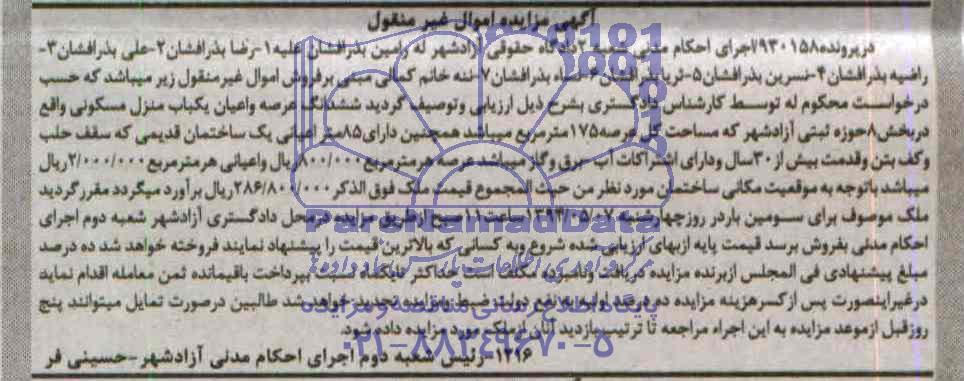 آگهی مزایده اموال غیر منقول
درپرونده ۷۹۳۰۱۵۸اجرای احکام مدنی شعبه ۲دادگاه حقوقی آزادشهر له رامین بذرافشان علیه ۱-رضا بذرافشان۲-علی بذرافشان۳-
راضیه بذرافشان۴-نسرین بذرافشان۵-ثریا بذرافشان۶- بذرافشان۷-ننه خانم کمائی مبنی برفروش اموال غیرمنقول زیر میباشد که حسب
درخواست محکوم له توسط کارشناس دادگستری بشرح ذیل ارزیابی وتوصیف گردید ششدانگ عرصه واعیان یکباب منزل مسکونی واقع
دربخش۸حوزه ثبتی آزادشهر که مساحت کل عرصه۱۷۵مترمربع میباشد همچنین دارای۸۵متر اعیانی یک ساختمان قدیمی که سقف حلب
وکف بتن وقدمت بیش از۳۰سال ودارای اشتراکات آب-برق وگاز میباشد عرصه هرمترمربع۸۰۰/۰۰۰ریال واعیانی هرمترمربع۲/۰۰۰/۰۰۰ریال
میباشد باتوجه به موقعیت مکانی ساختمان مورد نظر من حیث المجموع قیمت ملک فوق الذکر۲۸۶/۸۰۰/۰۰۰ریال برآورد میگردد مقرر گردید
ملک موصوف برای سومین باردر روزچهارشنبه ۱۳۹۴/۰۵/۰۷ساعت۱۱صبح ازطریق مزایده درمحل دادگستری آزادشهر شعبه دوم اجرای
احکام مدنی بفروش برسد قیمت پایه ازبهای ارزیابی شده شروع وبه کسانی که بالاترین قیمت را پیشنهاد نمایند فروخته خواهد شد ده درصد
مبلغ پیشنهادی فی المجلس ازبرنده مزایده دریافت ونامبرده مکلف است حداکثر تا یکماه نسبت بپرداخت باقیمانده ثمن معامله اقدام نماید
درغیراینصورت پس ازکسرهزینه مزایده ده درصد اولیه به نفع دولت ضبط ومزایده تجدید خواهد شد طالبین درصورت تمایل میتوانند پنج
روزقبل ازموعد مزایده به این اجراء مراجعه تا ترتیب بازدید آنان ازملک مورد مزایده داده شود.
۱۲۱۶-رئیس شعبه دوم اجرای احکام مدنی آزادشهر-حسینی فر
ParsNamadData
پایگاه اطلاع رسانی مناقصه و مزایده
۰۲۱-۸۸۳۴۹۶۷۰-۵